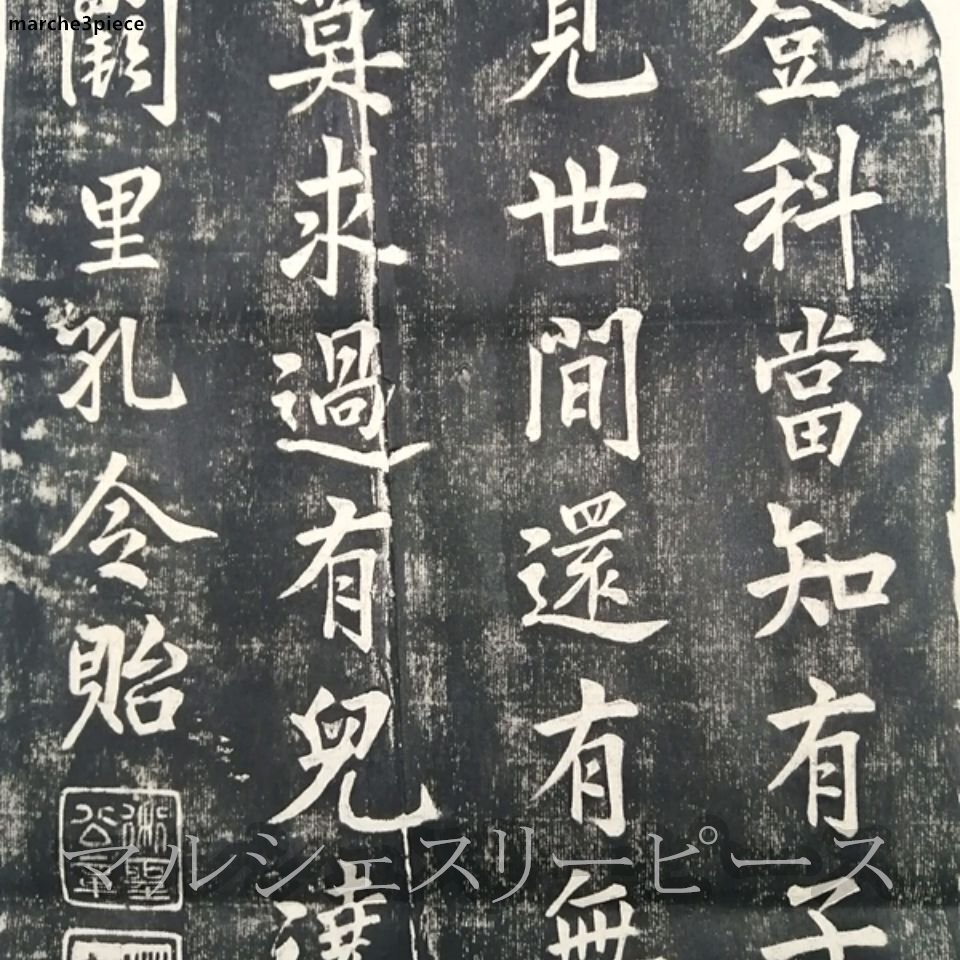 marche3piece
登科當知有子
見世間還有無
莫求過有兒澆
闕里孔令貽
マルシェスリーピース